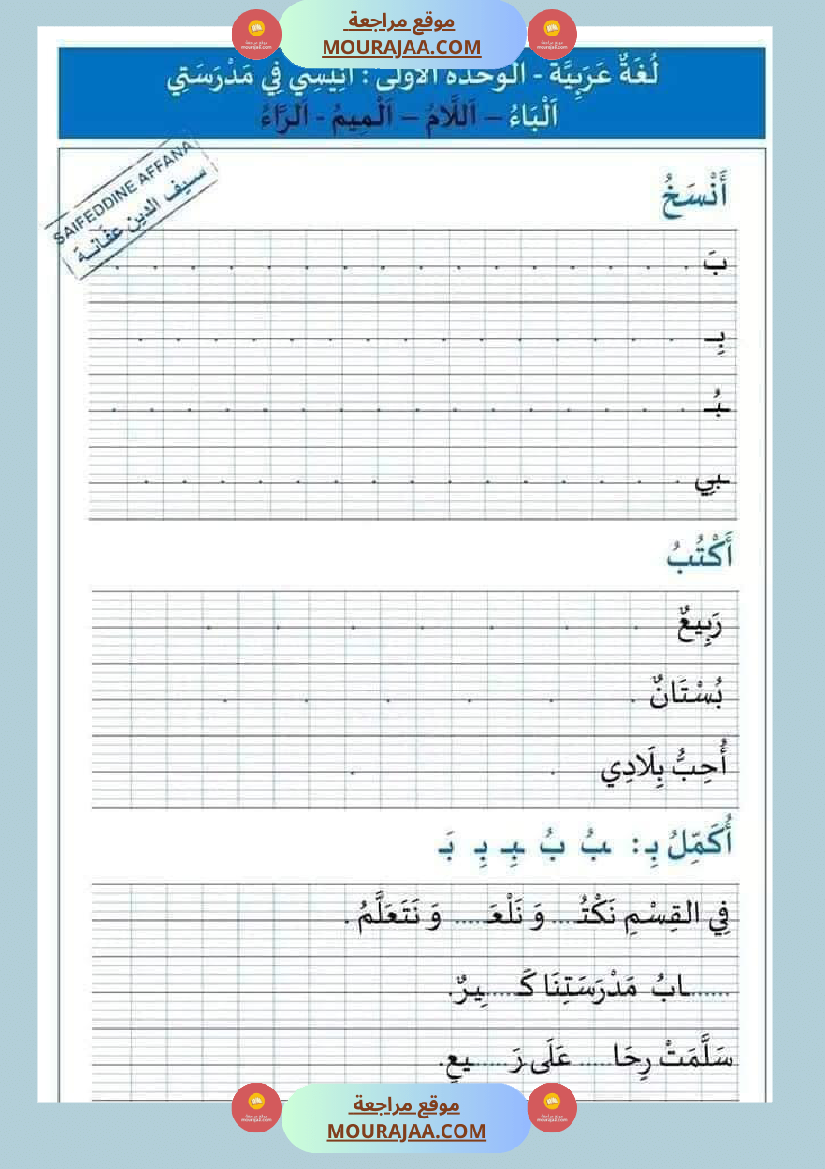 موقع مراجعة
MOURAJAA.COM
لُغَةٌ عَرَبِيَّة - الوحدة الأولى : أَنِيسِي فِي مَدْرَسَتِي
اَلْبَاءُ – اَللَّامُ – اَلْمِيمُ - اَلرَّاءُ
SAIFEDDINE AFFANA
سيف الدين عفانة
أَنْسَخُ
بَ . . . . . . . . . . . . . . . .
بِـ . . . . . . . . . . . . . . .
ـبُـ . . . . . . . . . . . . . . . .
ـبِي . . . . . . . . . . . . . .
أَكْتُبُ
رَبِيعٌ . . . . . . .
بُسْتَانٌ . . . . . .
أُحِبُّ بِلَادِي . .
أُكَمِّلُ بِـ: ـبُ بُ ـبِـ بِـ بَـ
فِي القِسْمِ نَكْتُـ.... وَ نَلْعَـ..... وَ نَتَعَلَّمُ .
......ـابُ مَدْرَسَتِنَا كَـ.....ـيرٌ.
سَلَّمَتْ رِحَا..... عَلَى رَ......ـيعٍ.
موقع مراجعة
MOURAJAA.COM